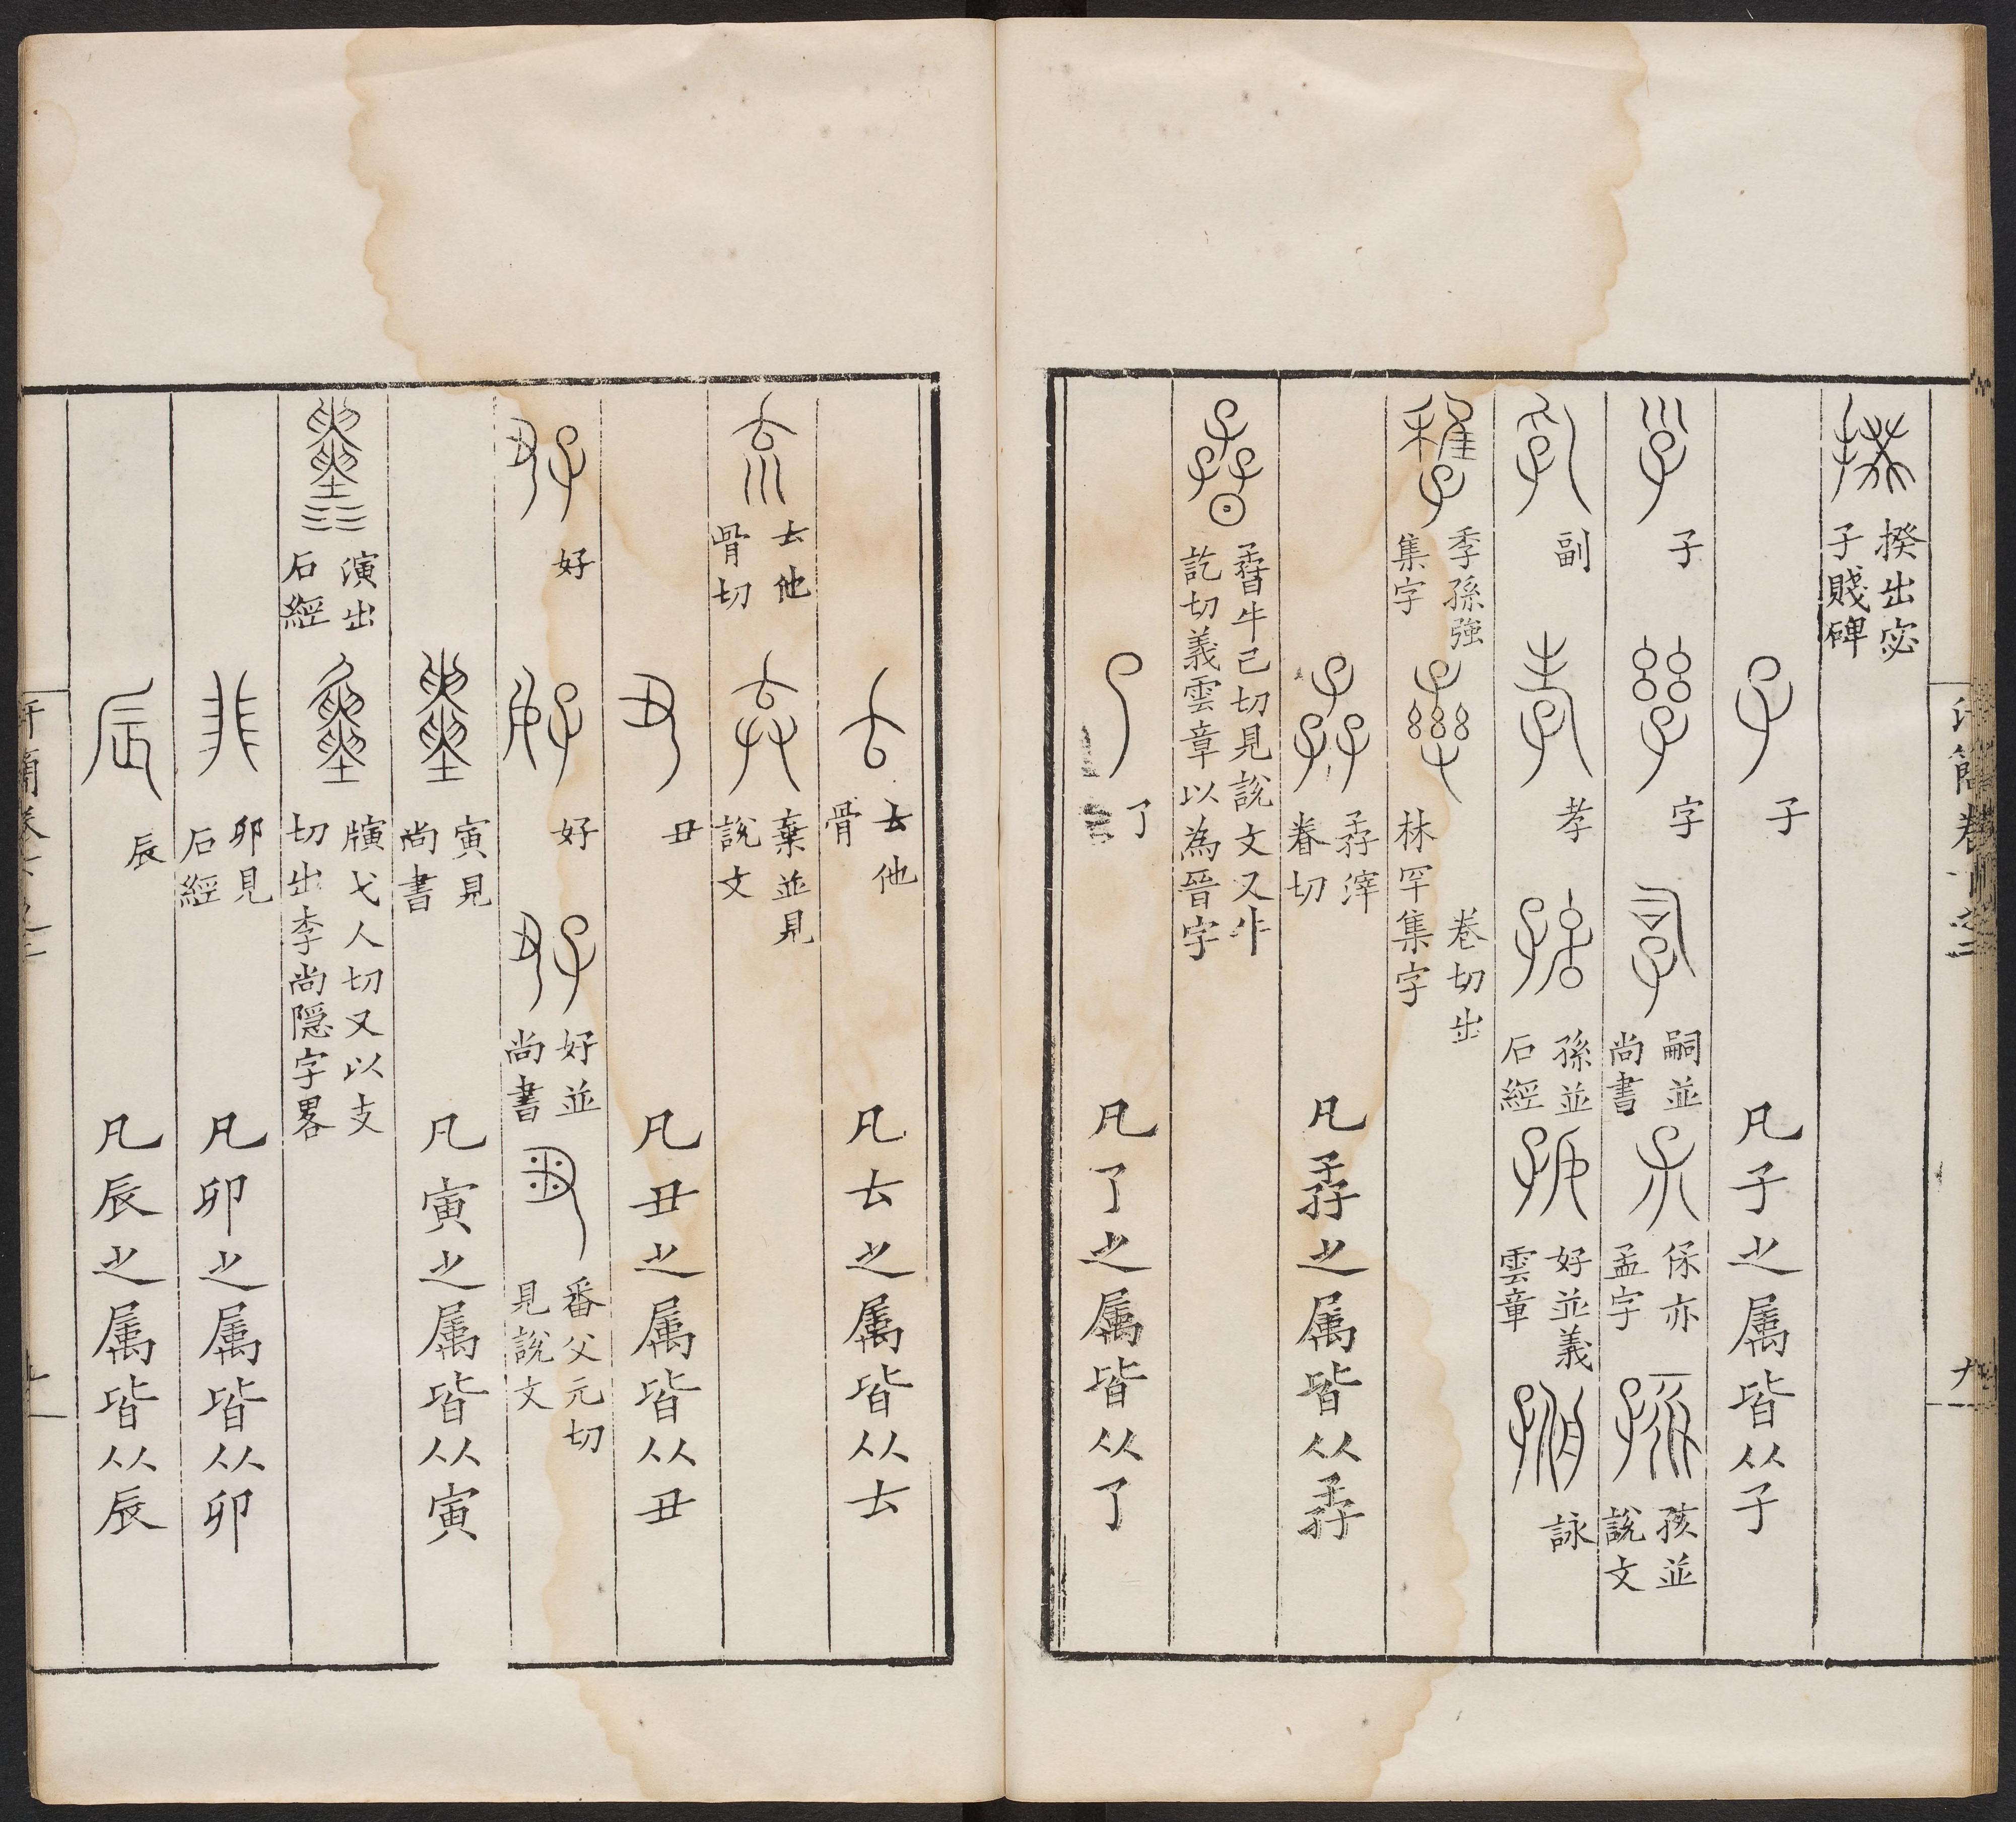 揆出宓子賤碑
子 凡子之属皆从子
子 字 嗣並尚書 保亦孟字 孩並說文
副 孝 孫並石經 好並義雲章 詠
季孫強集字 卷切出林罕集字
孨滓眷切 凡孨之属皆从孨
牛己切見說文又牛訖切義雲章以為晉字
了 凡了之属皆从了
𠫓他骨 凡𠫓之属皆从𠫓
𠫓他骨切 棄並見說文
丑 凡丑之属皆从丑
好 好 好並尚書 番父元切見說文
寅見尚書 凡寅之属皆从寅
演出石經 戭弋人切又以支切出李尚隠字畧
卯見石經 凡卯之属皆从卯
辰 凡辰之属皆从辰